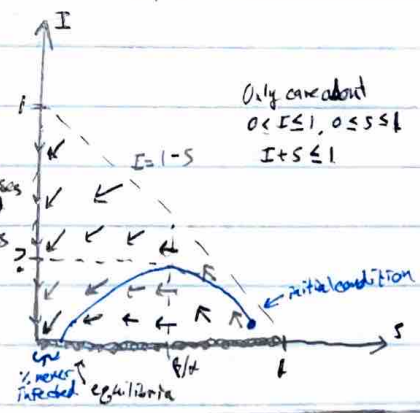 I
Only care about
0 < I ≤ 1, 0 ≤ S ≤ 1
I + S ≤ 1
1
I = 1 - S
?
initial condition
S
1
% never
infected
equilibria